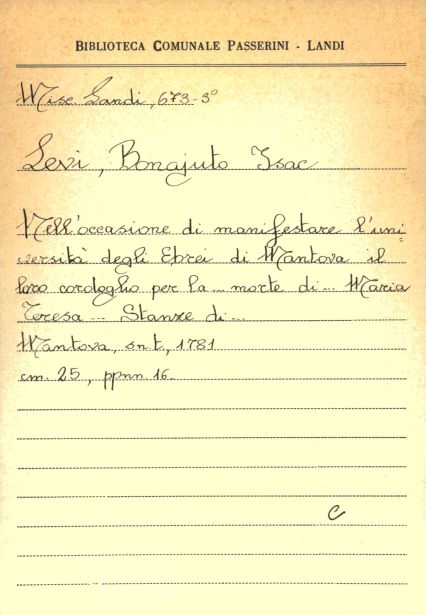 BIBLIOTECA COMUNALE PASSERINI - LANDI
Misc. Landi, 673-3°
Levi, Bonajuto Isac
Nell'occasione di manifestare l'uni=
versità degli Ebrei di Mantova il
loro cordoglio per la ... morte di ... Maria
Teresa ... Stanze di ...
Mantova, s.n.t., 1781
cm. 25, ppnn. 16.
C